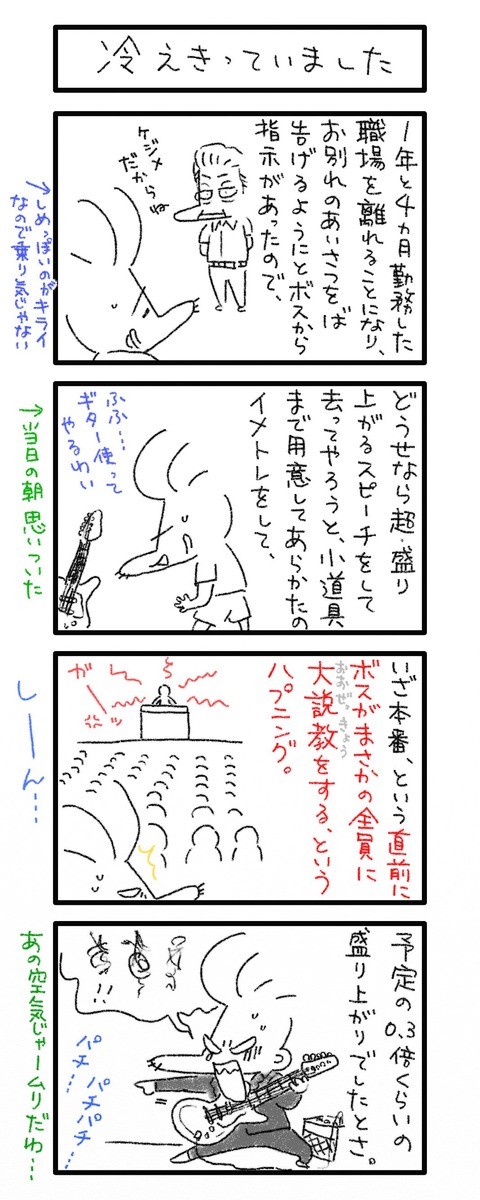 冷えきっていました
1年と4ヵ月勤務した
職場を離れることになり、
お別れのあいさつをば
告げるようにとボスから
指示があったので、
ケジメ
だからね
→しめっぽいのがキライ
なので乗り気じゃない
どうせなら超・盛り
上がるスピーチをして
去ってやろうと、小道具
まで用意してあらかたの
イメトレをして、
ふふ…
ギター使って
やるわい
→当日の朝思いついた
いざ本番、という直前に
ボスがまさかの全員に
大説教をする、という
おおぜっきょう
ハプニング。
ガミガミッ
しーん…
予定の0.3倍くらいの
盛り上がりでしたとさ。
!!
パチ…
パチパチ…
あの空気じゃームリだわ…